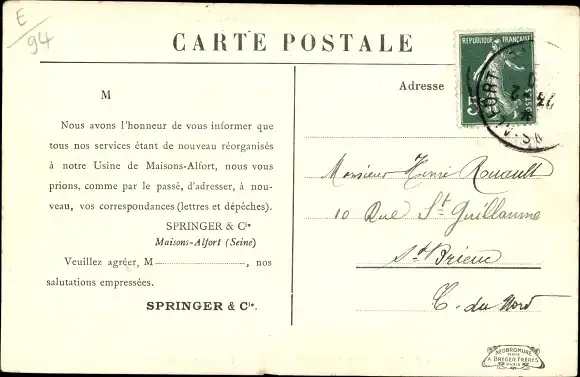 E
94
CARTE POSTALE
M
Nous avons l'honneur de vous informer que
tous nos services étant de nouveau réorganisés
à notre Usine de Maisons-Alfort, nous vous
prions, comme par le passé, d'adresser, à nou-
veau, vos correspondances (lettres et dépêches).
SPRINGER & Cie
Maisons-Alfort (Seine)
Veuillez agréer, M, nos
salutations empressées.
SPRINGER & Cie.
Adresse
REPUBLIQUE FRANÇAISE
5c
POSTES
Monsieur Henri Rouault
10 Rue St Guillaume
St Brieuc
C. du Nord
NEOBROMURE
A. BREGER FRÈRES
PARIS